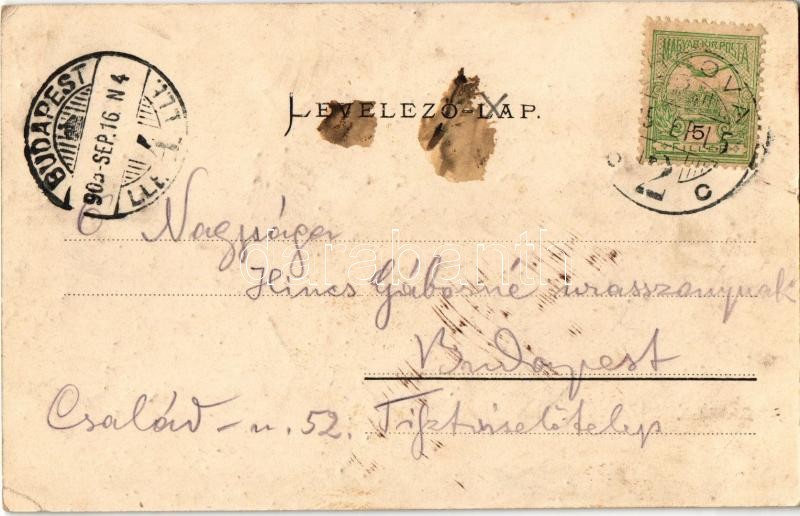 BUDAPEST
905-SEP.16 N4
LEVELEZŐ-LAP.
MAGYAR KIR. POSTA
5
FILLÉR
Ő Nagysága
Hincs Gáborné urasszonynak
Budapest
Család-u. 52. Tisztviselőtelep
darabanth